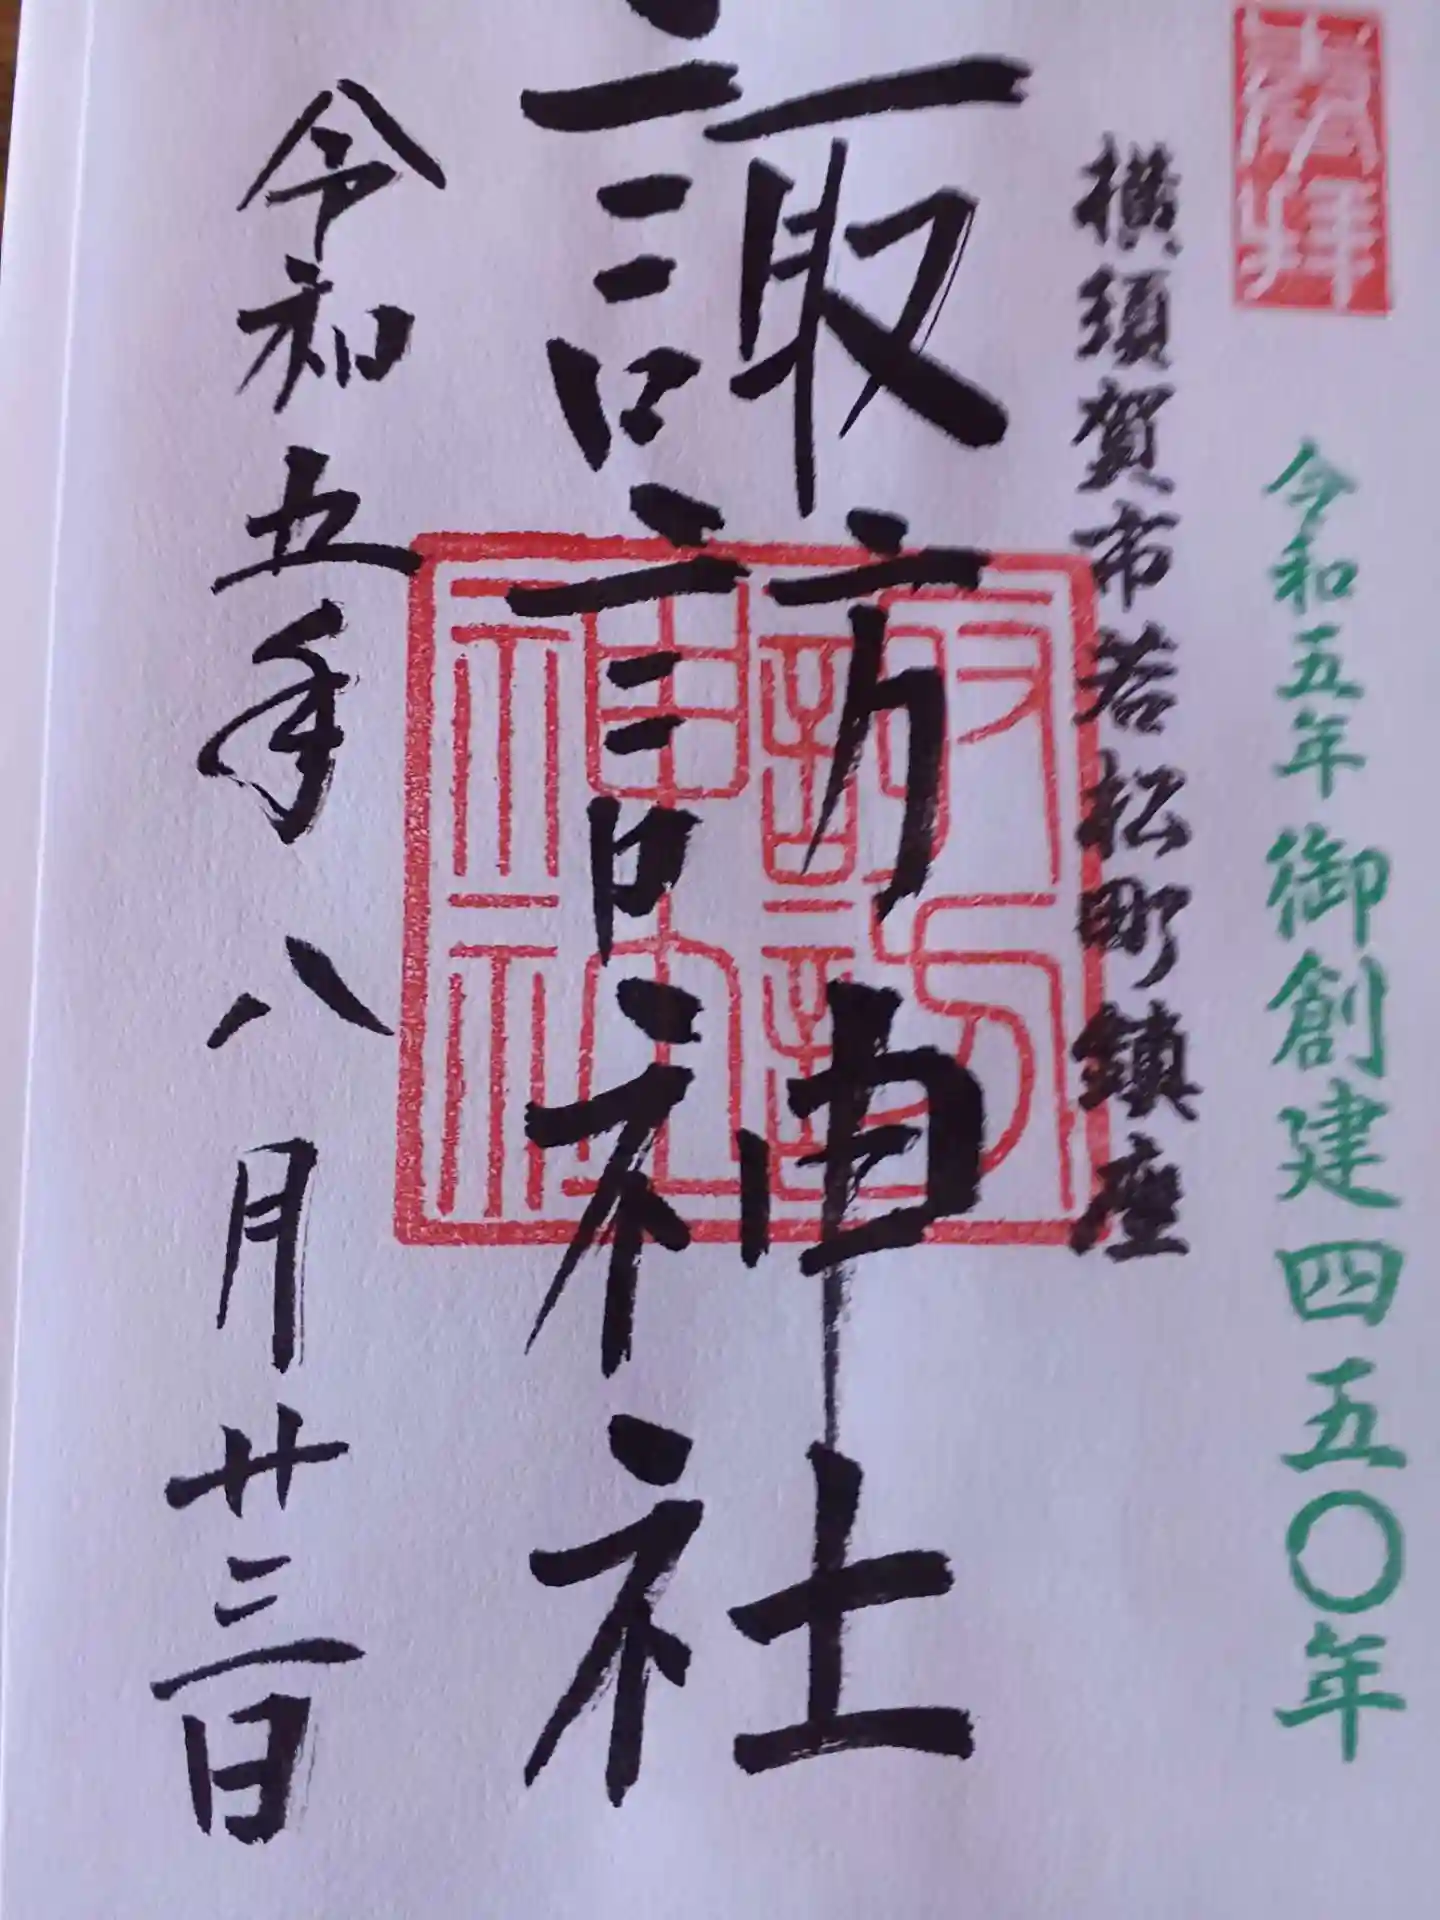 奉拝
令和五年御創建四五〇年
横須賀市若松町鎮座
諏訪神社
諏訪神社
令和五年八月廿三日